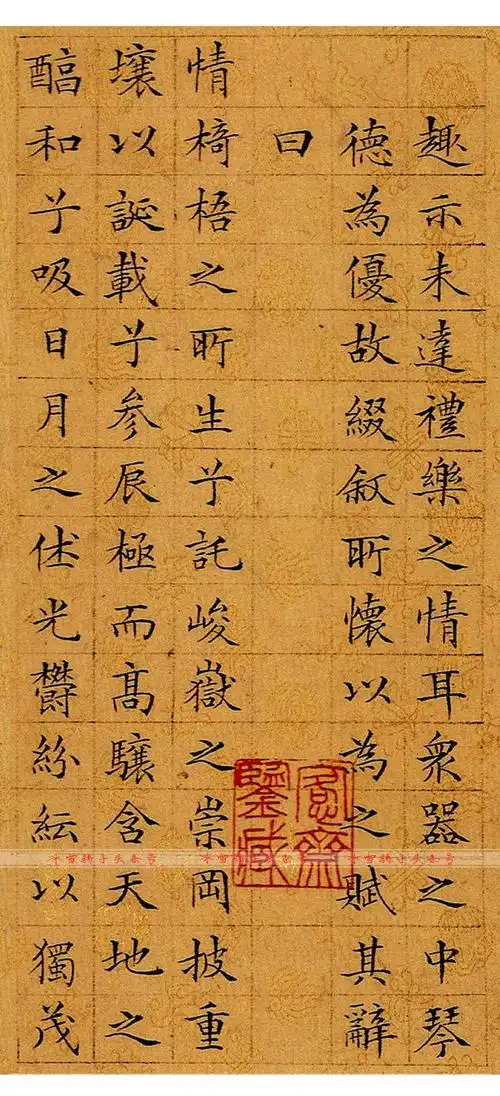 趣示未達禮樂之情耳衆器之中琴
德為優故綴敘所懷以為之賦其辭
曰
情椅梧之所生兮託峻嶽之崇岡披重
壤以誕載兮参辰極而髙驤含天地之
醕和兮吸日月之休光欝紛紜以獨茂